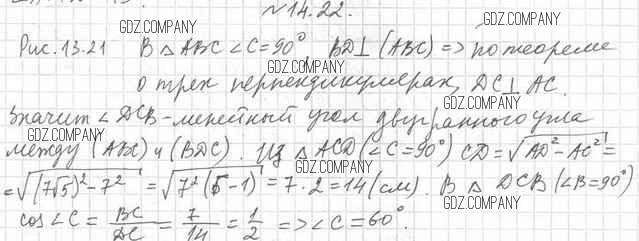 №14.22.
GDZ.COMPANY GDZ.COMPANY
Рис. 13.21 В △ABC ∠C=90° BD⊥(ABC) => по теореме
GDZ.COMPANY
о трех перпендикулярах, DC⊥AC.
GDZ.COMPANY
Значит ∠DCB - линейный угол двугранного угла
GDZ.COMPANY
между (ABC) и (BDC). Из △ACD (∠C=90°) CD=√(AD²-AC²)=
GDZ.COMPANY GDZ.COMPANY
=√((7√5)²-7²)=√(7²(5-1))=7·2=14(см). В △DCB (∠B=90°)
GDZ.COMPANY
cos∠C=BC/DC=7/14=1/2=>∠C=60°.
GDZ.COMPANY GDZ.COMPANY